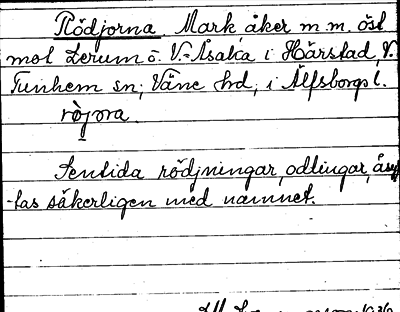 Rödjorna Mark, åker m.m. öst
mot Lerum o. V.-Åsaka i Hårstad, V.
Tunhem sn, Väne hd, i Älfsborgs l.
ròjơra.
Sentida rödjningar, odlingar, åsyf
-tas säkerligen med namnet.